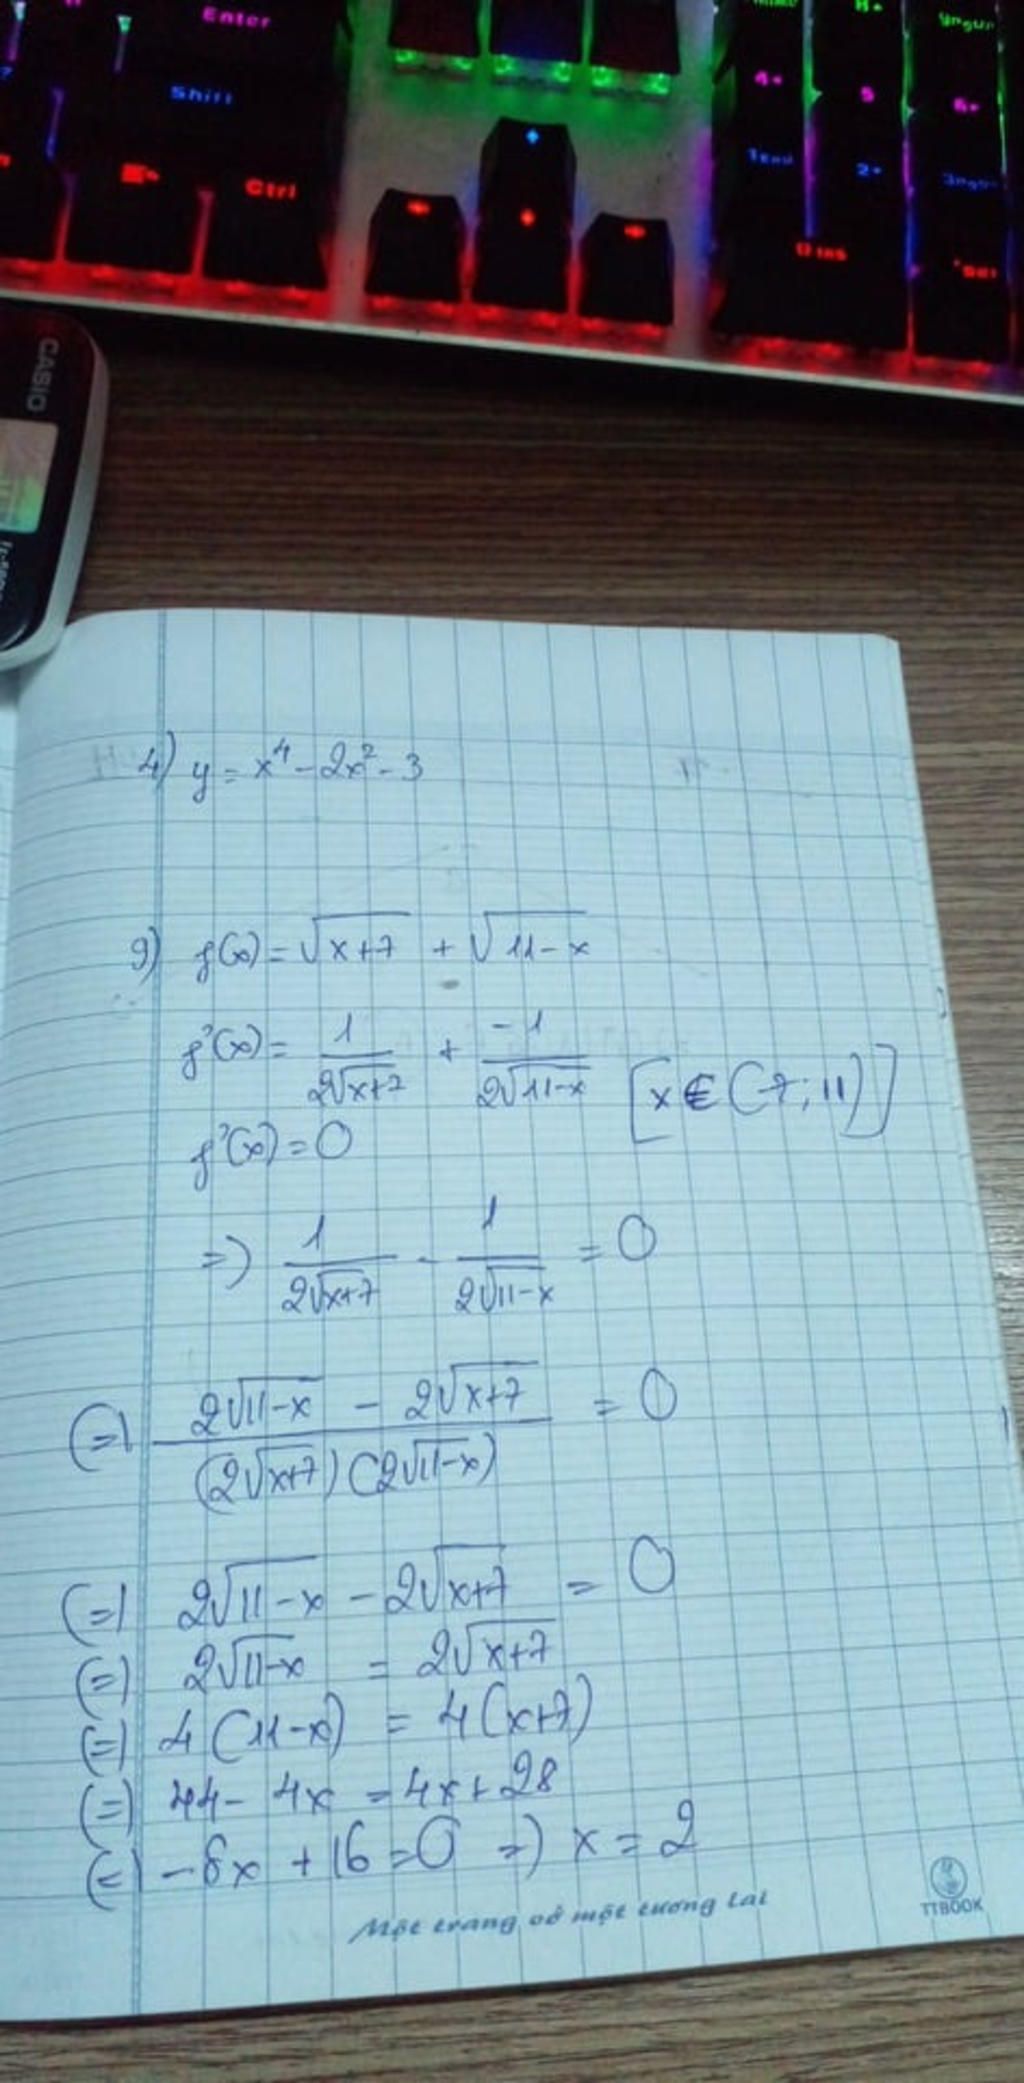 Enter
Shift
Ctrl
4
5
6
2
0 ins
CASIO
4) y = x⁴ - 2x² - 3
9) f(x) = √(x+7) + √(11-x)
f'(x) = 1/(2√(x+7)) + -1/(2√(11-x)) [x ∈ (-7; 11)]
f'(x) = 0
=) 1/(2√(x+7)) - 1/(2√(11-x)) = 0
(=) (2√(11-x) - 2√(x+7))/((2√(x+7))(2√(11-x))) = 0
(=) 2√(11-x) - 2√(x+7) = 0
(=) 2√(11-x) = 2√(x+7)
(=) 4(11-x) = 4(x+7)
(=) 44 - 4x = 4x + 28
(=) -8x + 16 = 0 =) x = 2
Một trang vở một tương lai
TTBOOK